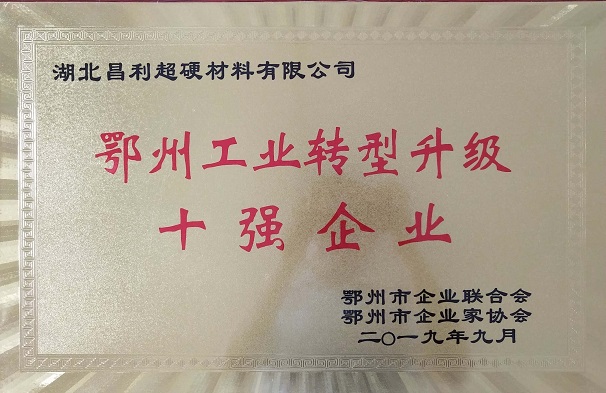 湖北昌利超硬材料有限公司
鄂州工业转型升级
十强企业
鄂州市企业联合会
鄂州市企业家协会
二〇一九年九月